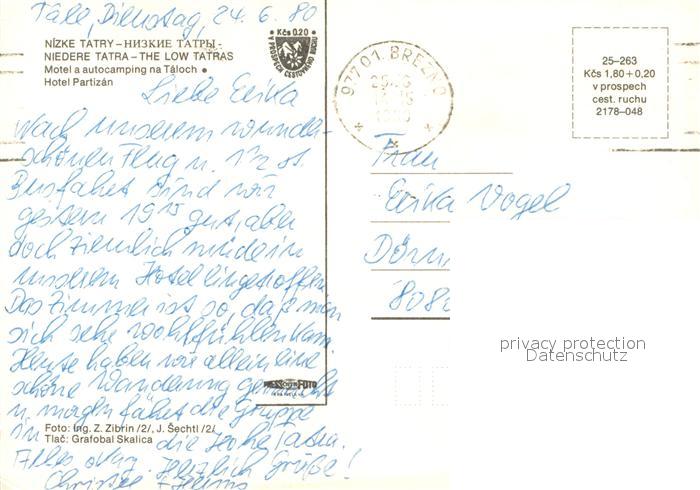 Tále, Dienstag, 24.6.80
NÍZKE TATRY – НИЗКИЕ ТАТРЫ –
NIEDERE TATRA – THE LOW TATRAS
Motel a autocamping na Táľoch •
Hotel Partizán
• Kčs 0,20 •
V PROSPECH CESTOVNÉHO RUCHU
Liebe Erika
Nach unserem wunder-
schönen Flug u. 1½ st.
Busfahrt sind wir
gestern 19 15 gut, aber
doch ziemlich müde in
unserem Hotel eingetroffen.
Das Zimmer ist so, daß man
sich sehr wohlfühlen kann.
Heute haben wir allein eine
schöne Wanderung gemacht
u. morgen fährt die Gruppe
in die Hohe Tatra.
Alles okay. Herzlich Grüße!
Christel + Heims
PRESSFOTO
Foto: Ing. Z. Zibrin /2/, J. Šechtl /2/
Tlač: Grafobal Skalica
977 01 BREZNO
25–263
Kčs 1,80 + 0,20
v prospech
cest. ruchu
2178–048
Frau
Erika Vogel
808
privacy protection
Datenschutz